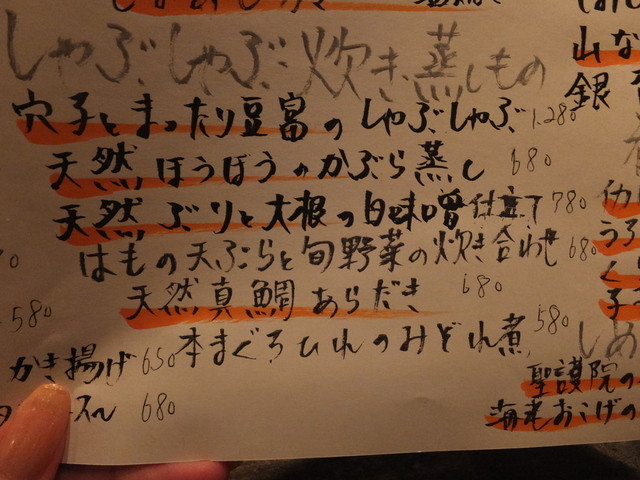 しゃぶしゃぶ 炊き 蒸しもの
穴子とまったり豆富のしゃぶしゃぶ 1,280
天然ほうぼうのかぶら蒸し 680
天然ぶりと大根の白味噌仕立て 780
はもの天ぷらと旬野菜の炊き合わせ 680
天然真鯛あらだき 680
本まぐろひれのみぞれ煮 580
580
かき揚げ 650
680
山な
銀
しめ
聖護院の
海老おこげの